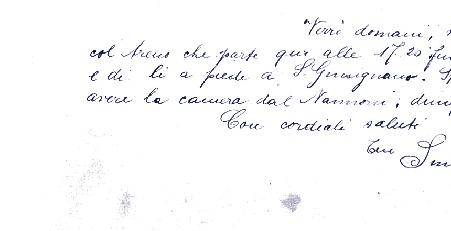 Verrò domani,
col treno che parte qui alle 17.25
e di lì a piedi a S. Gimignano.
avere la camera dal Nannoni;
Con cordiali saluti
tuo